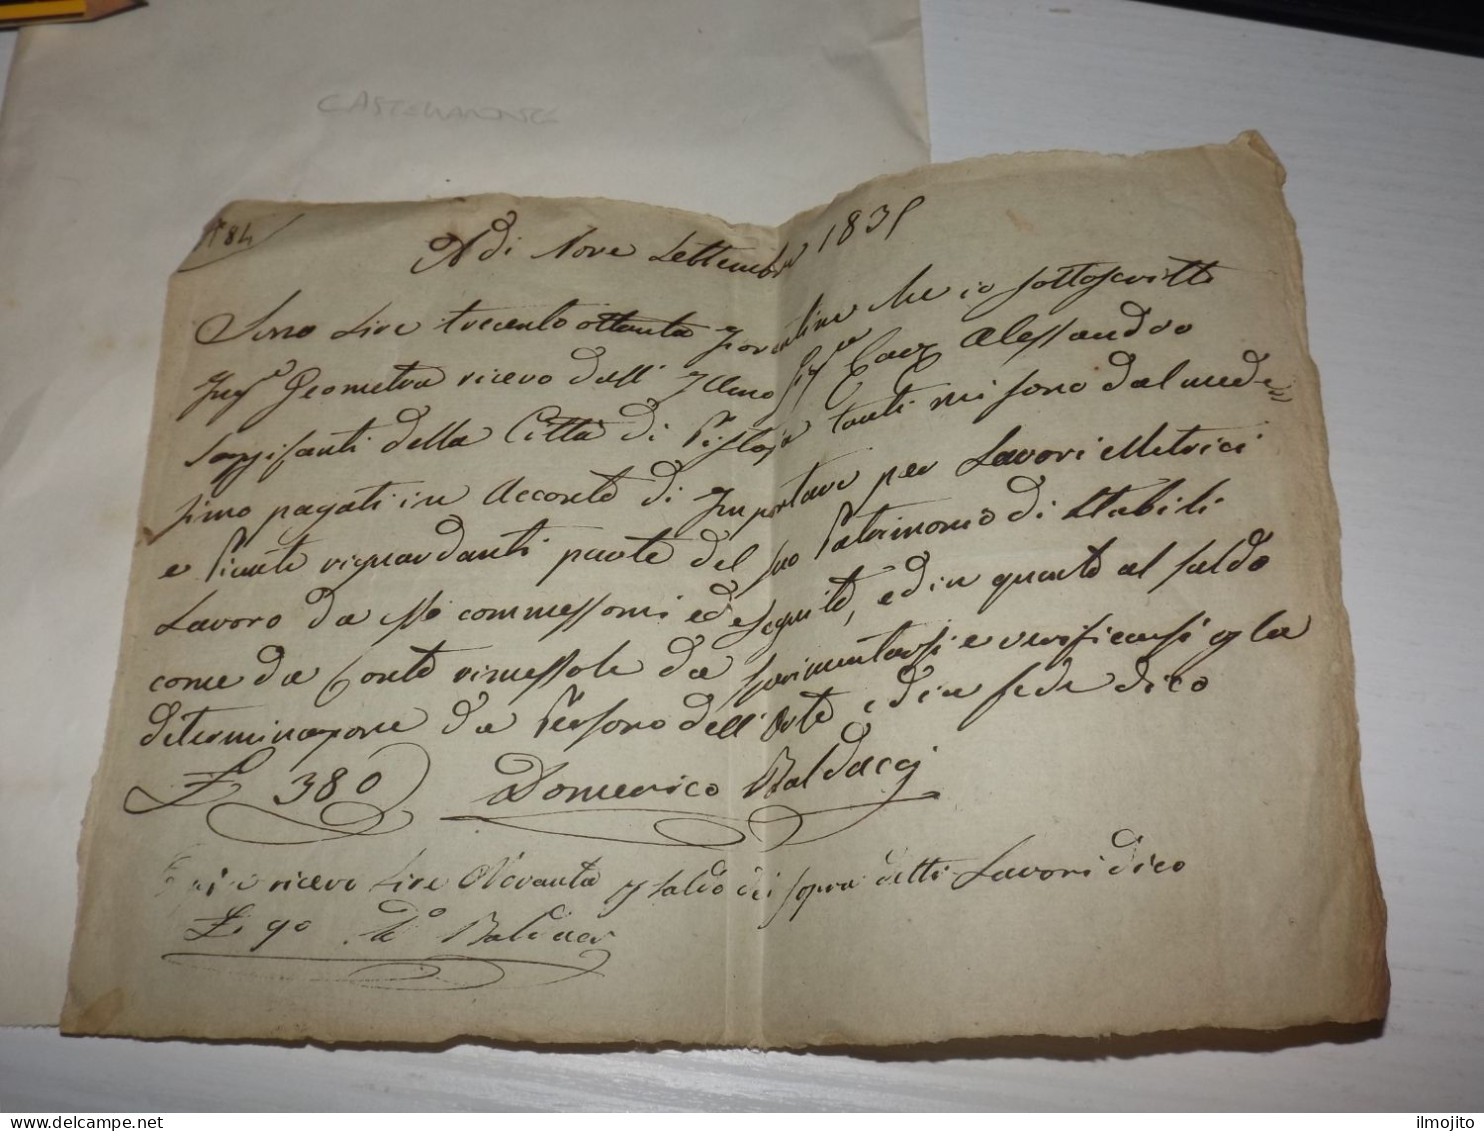 CASTELLAMONTE
184
A di Nove Settembre 1835
Sono Lire trecento ottanta Fiorentine che io sottoscritto
Ing.e Geometra ricevo dall' Illmo Sig.r Cav. Alessandro
Sozzifanti della Città di Pistoja tanti mi sono dal mede-
simo pagati in acconto di Importare per Lavori Metrici
e Piante riguardanti parte del suo Patrimonio di Stabili
Lavoro da esso commessomi ed eseguito, ed in quanto al saldo
come da Conto rimessole da sperimentarsi e verificarsi p la
determinazione da Persone dell' Arte, ed in fede dico
£ 380 Domenico Baldacci
E più ricevo Lire Novanta p saldo dei sopra detti Lavori dico
£ 90 D.o Baldacci
ilmojito